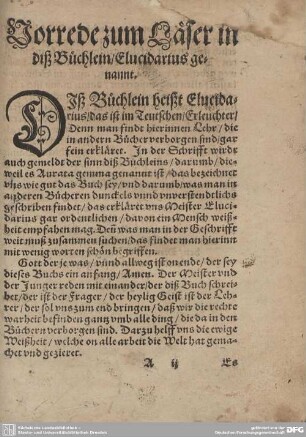 Vorrede zum Läser in
diß Büchlein/Elucidarius ge-
nannt.
DIß Büchlein heißt Elucida-
rius/das ist im Teutschen/Erleuchter/
Denn man findt hierinnen Lehr/die
in andern Bücher verborgen sind gar
fein erkläret. In der Schrifft wirdt
auch gemeldt der sinn diß Büchleins/darumb/die-
weil es Aurata gemma genannt ist/das bezeichnet
vns wie gut das Buch sey/vnd darumb/was man in
anderen Bücheren dunckels vnnd vnverstendlichs
geschriben findet/das erkläret vns Meister Eluci-
darius gar ordentlichen/davon ein Mensch weiß-
heit empfahen mag. Deñ was man in der Geschrifft
weit muß zusammen suchen/das findet man hierinn
mit wenig worten schön begriffen.
Gott der je was/vnnd allweg ist on ende/der sey
dieses Buchs ein anfang/Amen. Der Meister vnd
der Junger reden mit einander/der diß Buch schrei-
bet/der ist der Frager/der heylig Geist ist der Leh-
rer/der sol vns zum end bringen/daß wir die rechte
warheit befinden gantz vmb alle ding/die da in den
Büchern verborgen sind. Darzu helff vns die ewige
Weißheit/welche on alle arbeit die Welt hat gema-
chet vnd gezieret.
A ij Es